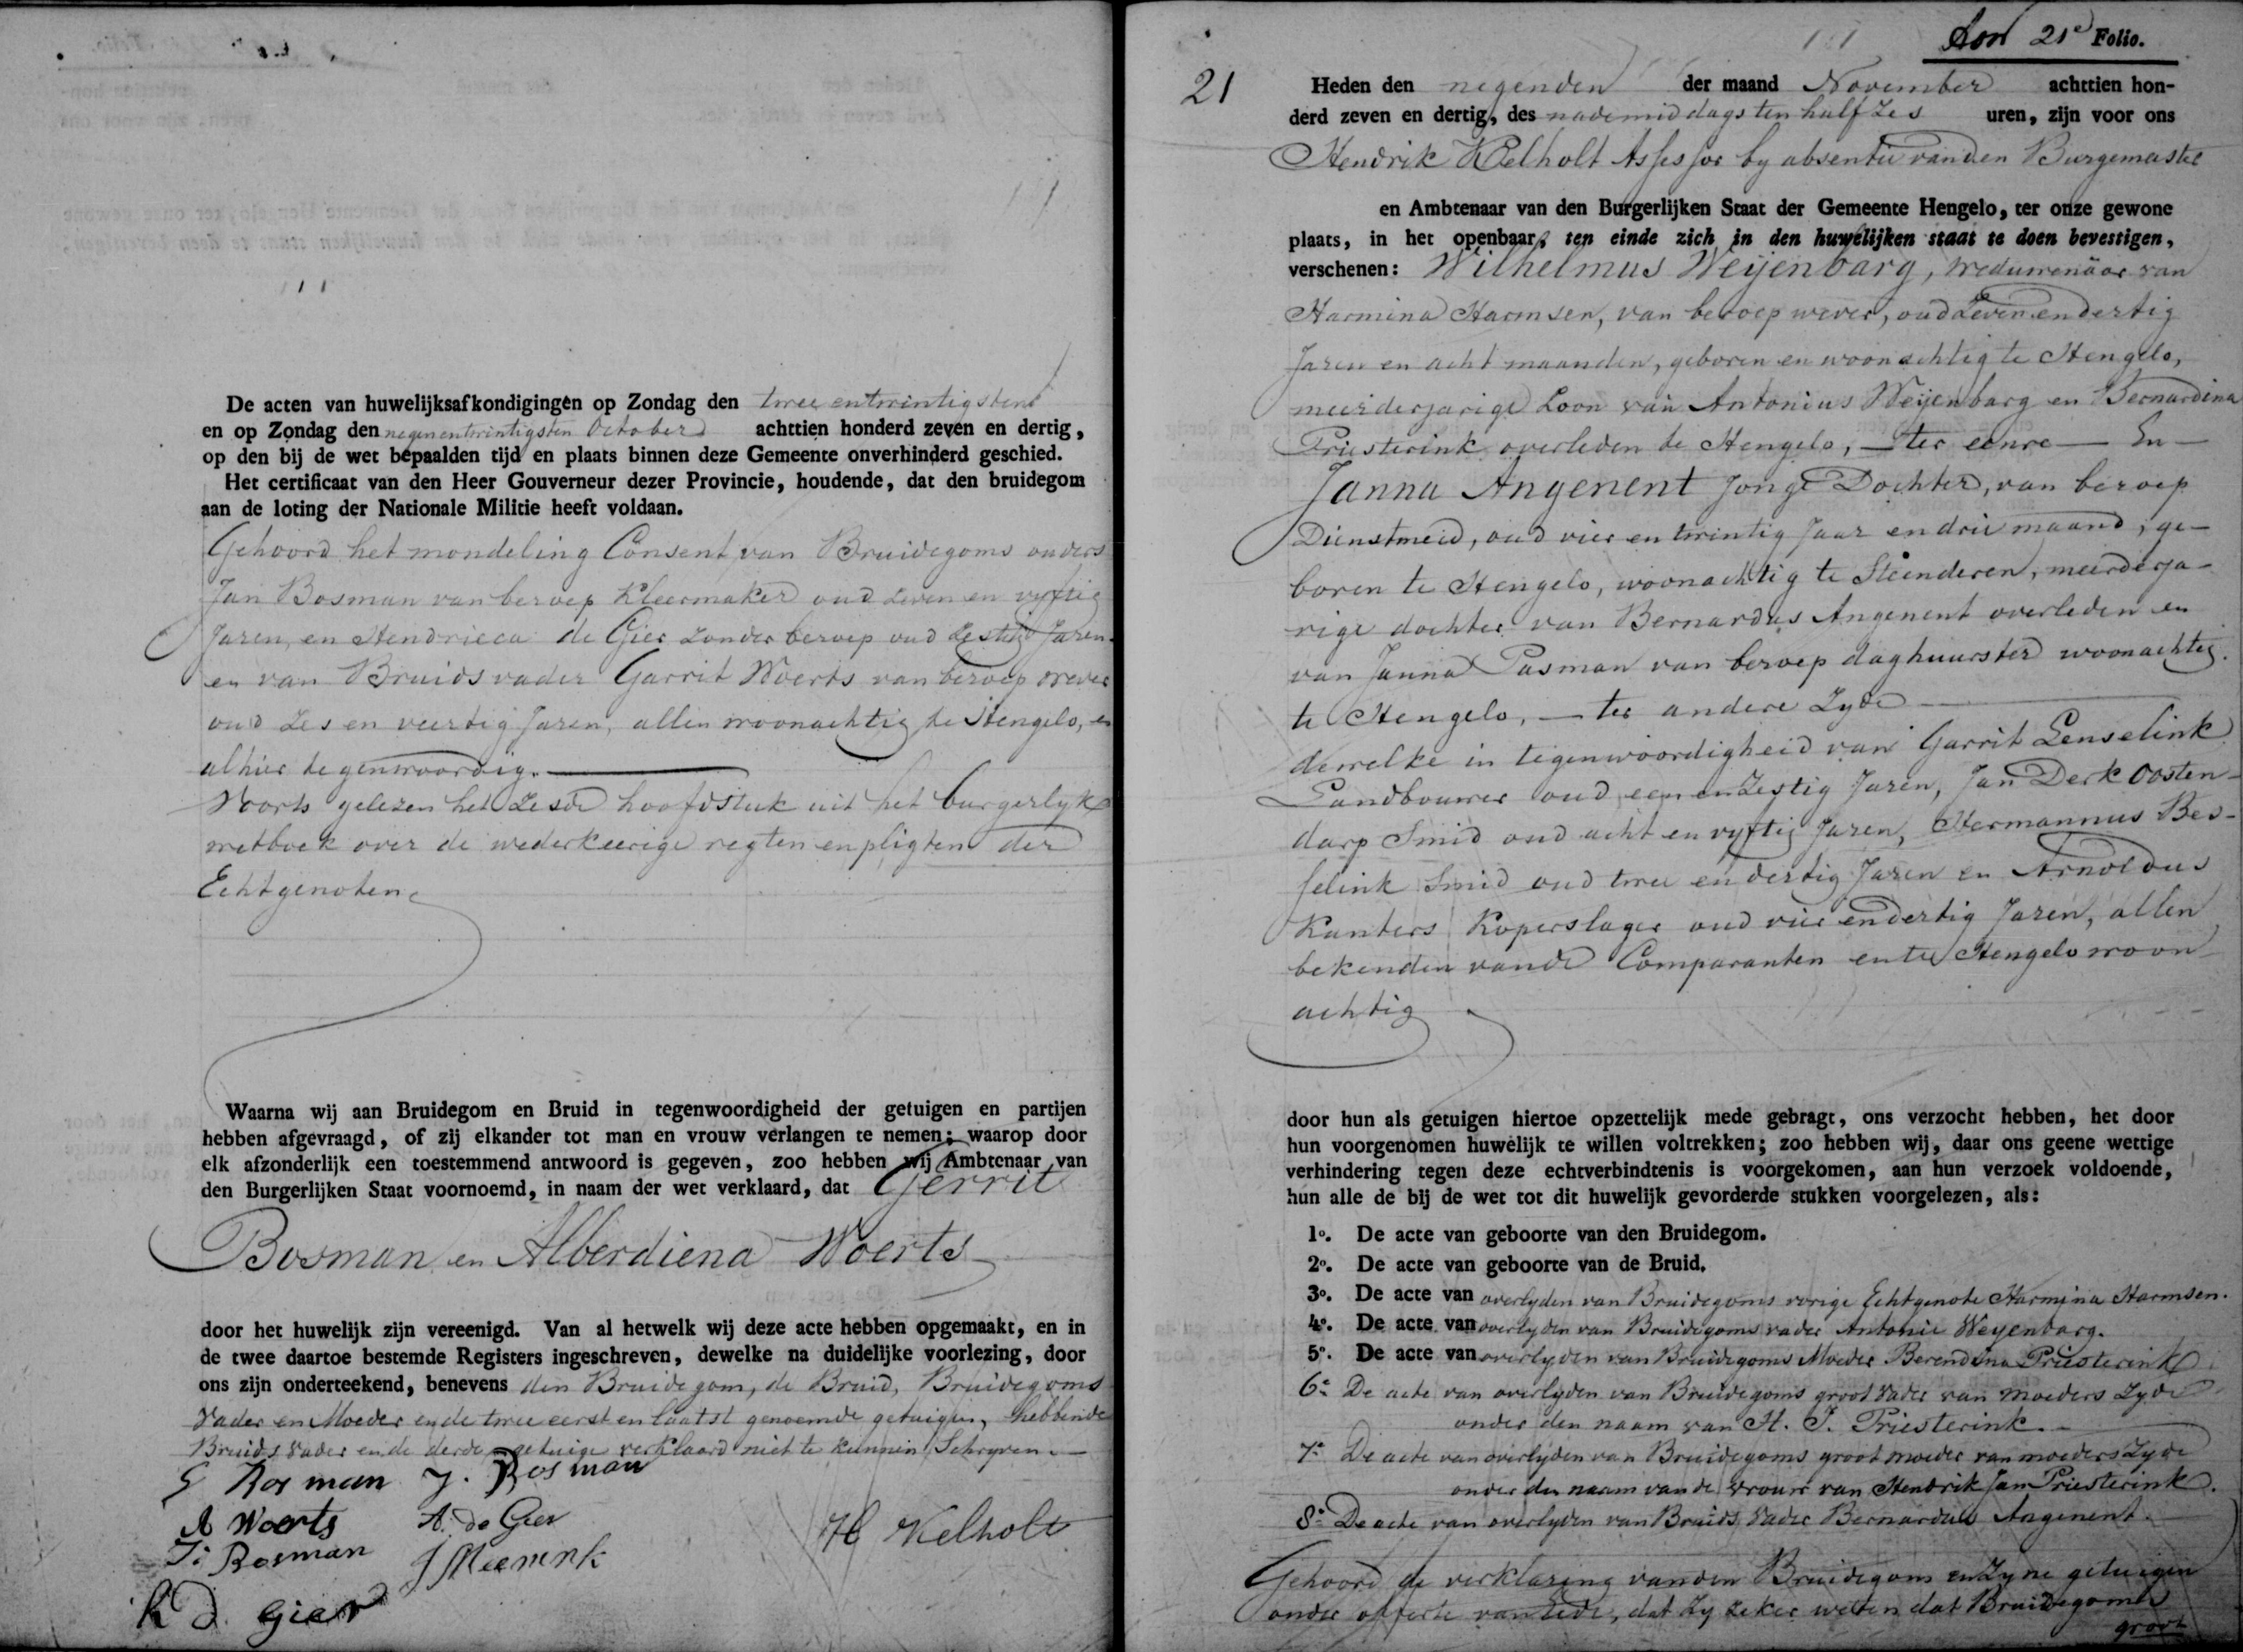 De acten van huwelijksafkondigingen op Zondag den twee entwintigsten
en op Zondag den negenentwintigsten October achttien honderd zeven en dertig,
op den bij de wet bepaalden tijd en plaats binnen deze Gemeente onverhinderd geschied.
Het certificaat van den Heer Gouverneur dezer Provincie, houdende, dat den bruidegom
aan de loting der Nationale Militie heeft voldaan.
Gehoord het mondeling Consent van Bruidegoms ouders
Jan Bosman van beroep Kleermaker oud zeven en vyftig
Jaren, en Hendrieca de Gier zonder beroep oud zestig Jaren
en van Bruids vader Garrit Woerts van beroep wever
oud zes en veertig Jaren, allen woonachtig te Hengelo, en
alhier tegenwoordig.
Voorts gelezen het zesde hoofdstuk uit het burgerlyk
wetboek over de wederkeerige regten en pligten der
Echtgenoten
Waarna wij aan Bruidegom en Bruid in tegenwoordigheid der getuigen en partijen
hebben afgevraagd, of zij elkander tot man en vrouw verlangen te nemen; waarop door
elk afzonderlijk een toestemmend antwoord is gegeven, zoo hebben wij Ambtenaar van
den Burgerlijken Staat voornoemd, in naam der wet verklaard, dat Gerrit
Bosman en Alberdiena Woerts
door het huwelijk zijn vereenigd. Van al hetwelk wij deze acte hebben opgemaakt, en in
de twee daartoe bestemde Registers ingeschreven, dewelke na duidelijke voorlezing, door
ons zijn onderteekend, benevens den Bruidegom, de Bruid, Bruidegoms
Vader en Moeder en de twee eerst en laatst genoemde getuigen, hebbende
Bruids Vader en de derde getuige verklaard niet te kunnen Schryven.
G Bosman J. Bosman
A Woerts A. de Gier
J: Bosman H Kelholt
h d. Gier
21
21e Folio.
Heden den negenden der maand November achttien hon-
derd zeven en dertig, des nademiddags ten half zes uren, zijn voor ons
Hendrik Kelholt Assessor by absentie van den Burgemeester
en Ambtenaar van den Burgerlijken Staat der Gemeente Hengelo, ter onze gewone
plaats, in het openbaar, ten einde zich in den huwelijken staat te doen bevestigen,
verschenen: Wilhelmus Weijenbarg, weduwenaar van
Harmina Harmsen, van beroep wever, oud zeven en dertig
Jaren en acht maanden, geboren en woonachtig te Hengelo,
meerderjarige Zoon van Antonius Weijenbarg en Bernardina
Priesterink overleden te Hengelo, — ter eenre — En —
Janna Angenent Jonge Dochter, van beroep
Dienstmeid, oud vier en twintig Jaar en drie maand, ge-
boren te Hengelo, woonachtig te Steenderen, meerderja-
rige dochter van Bernardus Angenent overleden en
van Janna Pasman van beroep daghuurster woonachtig
te Hengelo, — ter andere Zyde
dewelke in tegenwoordigheid van Garrit Lenselink
Landbouwer oud een en zestig Jaren, Jan Derk Oosten-
darp Smid oud acht en vyftig Jaren, Hermannus Bes-
selink Smid oud twee en dertig Jaren en Arnoldus
Kanters Koperslager oud vier en dertig Jaren, allen
bekenden van de Comparanten en te Hengelo woon-
achtig
door hun als getuigen hiertoe opzettelijk mede gebragt, ons verzocht hebben, het door
hun voorgenomen huwelijk te willen voltrekken; zoo hebben wij, daar ons geene wettige
verhindering tegen deze echtverbindtenis is voorgekomen, aan hun verzoek voldoende,
hun alle de bij de wet tot dit huwelijk gevorderde stukken voorgelezen, als:
1o. De acte van geboorte van den Bruidegom.
2o. De acte van geboorte van de Bruid.
3o. De acte van overlyden van Bruidegoms vorige Echtgenote Harmina Harmsen.
4o. De acte van overlyden van Bruidegoms vader Antonie Weyenbarg.
5o. De acte van overlyden van Bruidegoms Moeder Berendina Priesterink
6o De acte van overlyden van Bruidegoms groot vader van moeders Zyde
onder den naam van H. J. Priesterink.
7o De acte van overlyden van Bruidegoms groot moeder van moeders Zyde
onder den naam van de vrouw van Hendrik Jan Priesterink.
8o De acte van overlyden van Bruids Vader Bernardus Angenent.
Gehoord de verklaring van den Bruidegom en Zyne getuigen
onder offerte van Eede, dat zy zeker weten dat Bruidegoms
groot